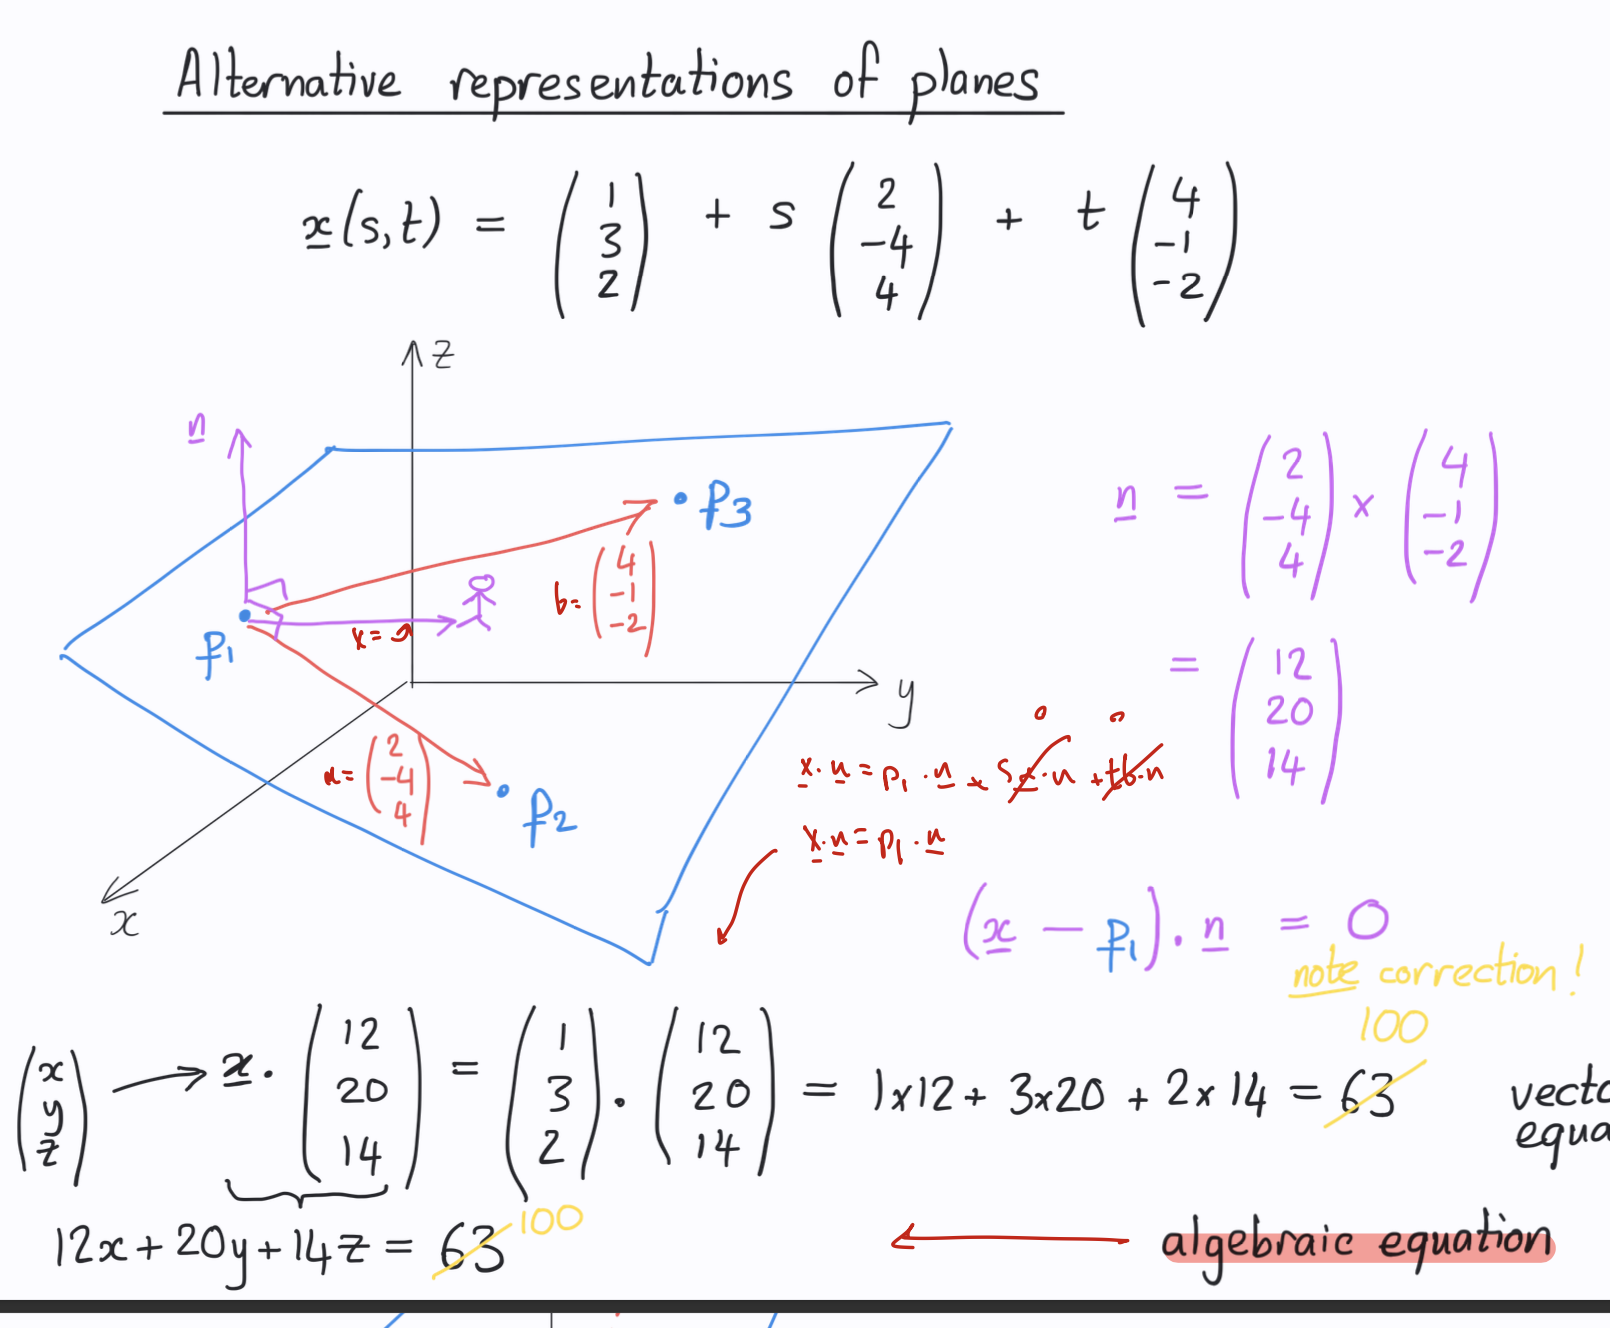 Alternative representations of planes
x(s,t) = (1 3 2) + s (2 -4 4) + t (4 -1 -2)
z
n
p3
b= (4 -1 -2)
p1
x=
y
a= (2 -4 4)
p2
x
n = (2 -4 4) × (4 -1 -2)
= (12 20 14)
0 0
x·n = p1·n + sa·n + tb·n
x·n = p1·n
(x - p1)·n = 0
note correction!
100
(x y z) → x·(12 20 14) = (1 3 2)·(12 20 14) = 1x12 + 3x20 + 2x14 = 63
vecto
equa
12x + 20y + 14z = 63 100
algebraic equation